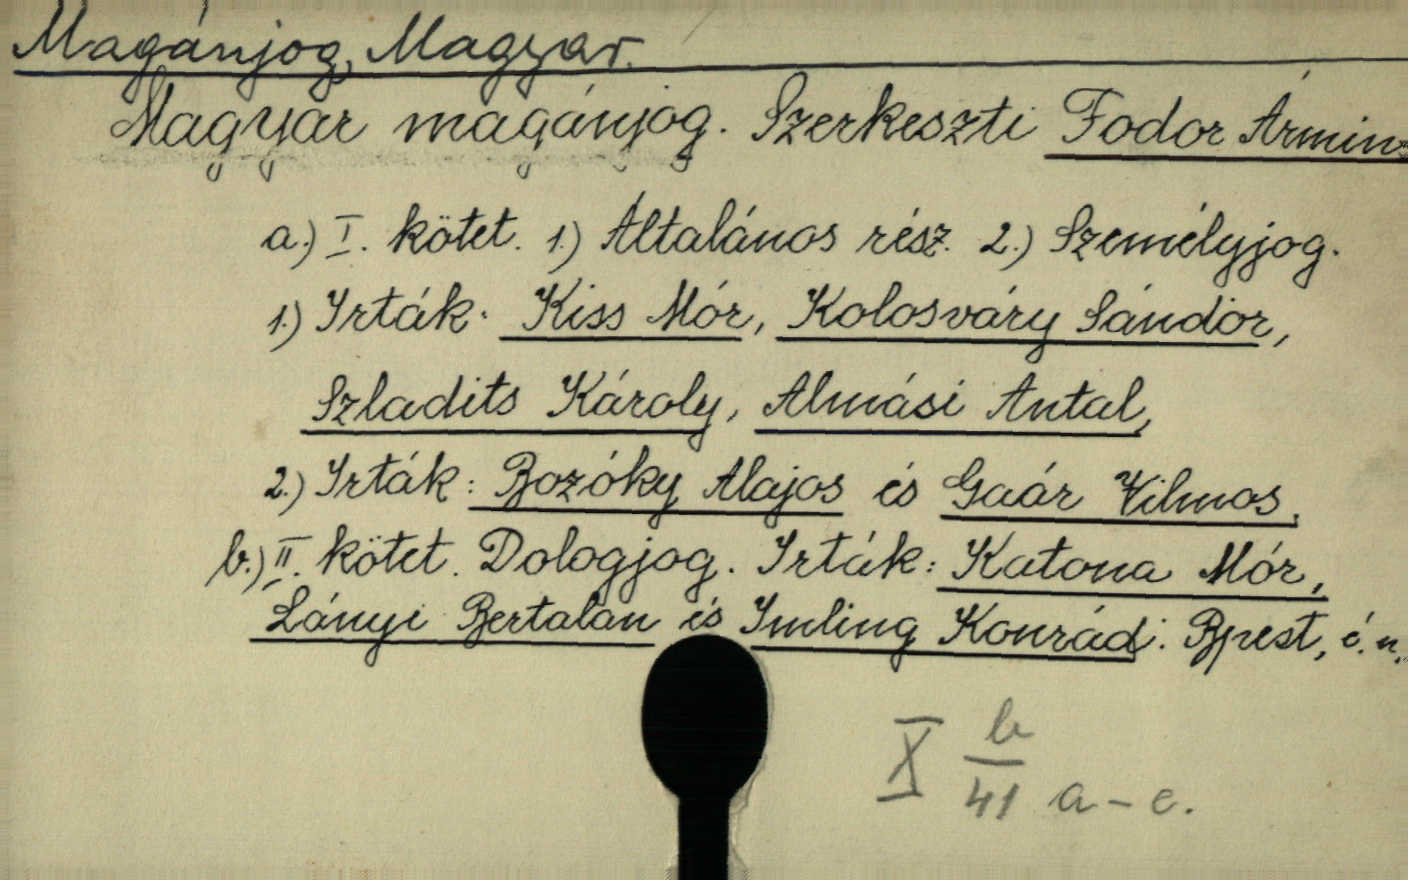 Magánjog, Magyar.
Magyar magánjog. Szerkeszti Fodor Ármin.
a.) I. kötet. 1.) Általános rész. 2.) Személyjog.
1.) Irták: Kiss Mór, Kolosváry Sándor,
Szladits Károly, Almási Antal,
2.) Irták: Bozóky Alajos és Gaár Vilmos.
b.) II. kötet. Dologjog. Irták: Katona Mór,
Lányi Bertalan és Imling Konrád. Bpest, é. n.
X b
41 a–e.